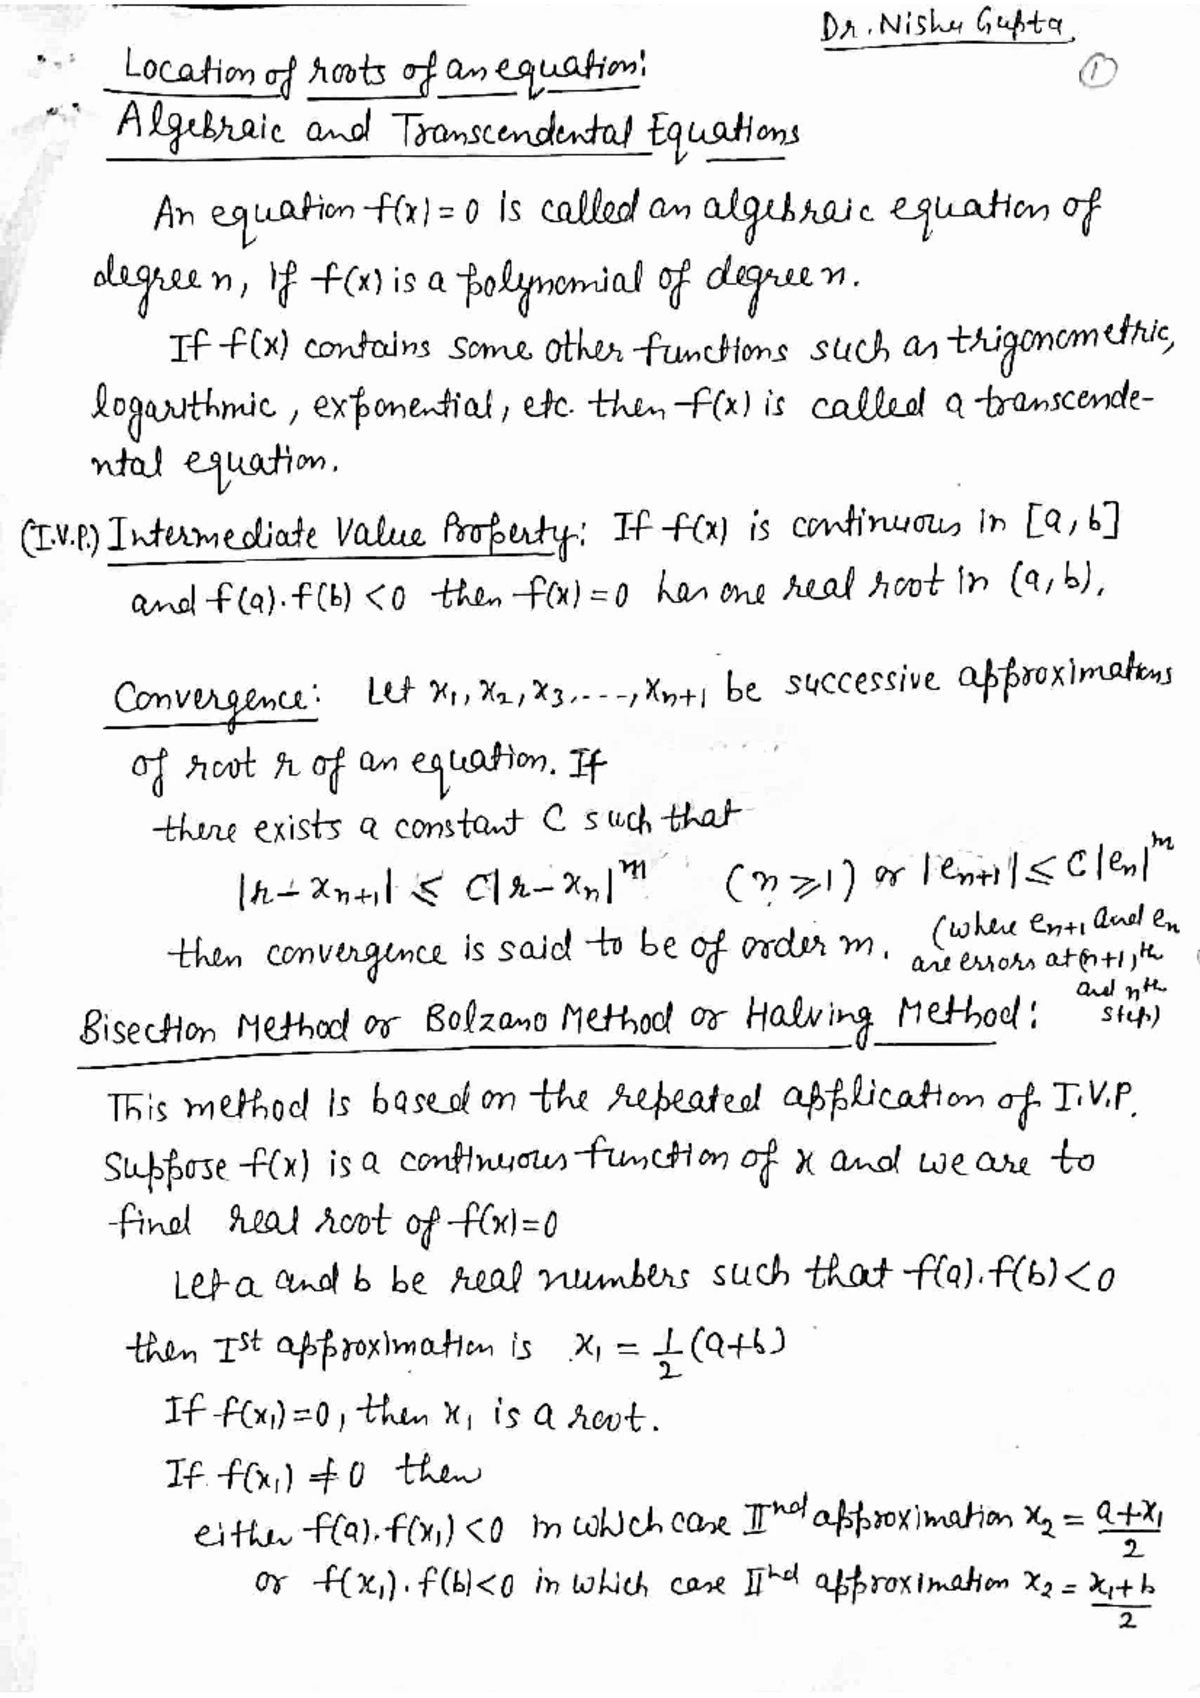 Dr. Nishu Gupta
1
Location of roots of an equation:
Algebraic and Transcendental Equations
An equation f(x) = 0 is called an algebraic equation of
degree n, If f(x) is a polynomial of degree n.
If f(x) contains some other functions such as trigonometric,
logarithmic, exponential, etc. then f(x) is called a transcende-
ntal equation.
(I.V.P.) Intermediate Value Property: If f(x) is continuous in [a, b]
and f(a). f(b) < 0 then f(x) = 0 has one real root in (a, b).
Convergence: Let x₁, x₂, x₃, ----, xₙ₊₁ be successive approximations
of root r of an equation. If
there exists a constant C such that
|r - xₙ₊₁| ≤ C|r - xₙ|ᵐ (n ≥ 1) or |eₙ₊₁| ≤ C|eₙ|ᵐ
then convergence is said to be of order m. (where eₙ₊₁ and eₙ
are errors at (n+1)th
and nth
step)
Bisection Method or Bolzano Method or Halving Method:
This method is based on the repeated application of I.V.P.
Suppose f(x) is a continuous function of x and we are to
find real root of f(x) = 0
Let a and b be real numbers such that f(a). f(b) < 0
then Ist approximation is x₁ = 1/2 (a+b)
If f(x₁) = 0, then x₁ is a root.
If f(x₁) ≠ 0 then
either f(a). f(x₁) < 0 in which case IInd approximation x₂ = a+x₁/2
or f(x₁). f(b) < 0 in which case IInd approximation x₂ = x₁+b/2